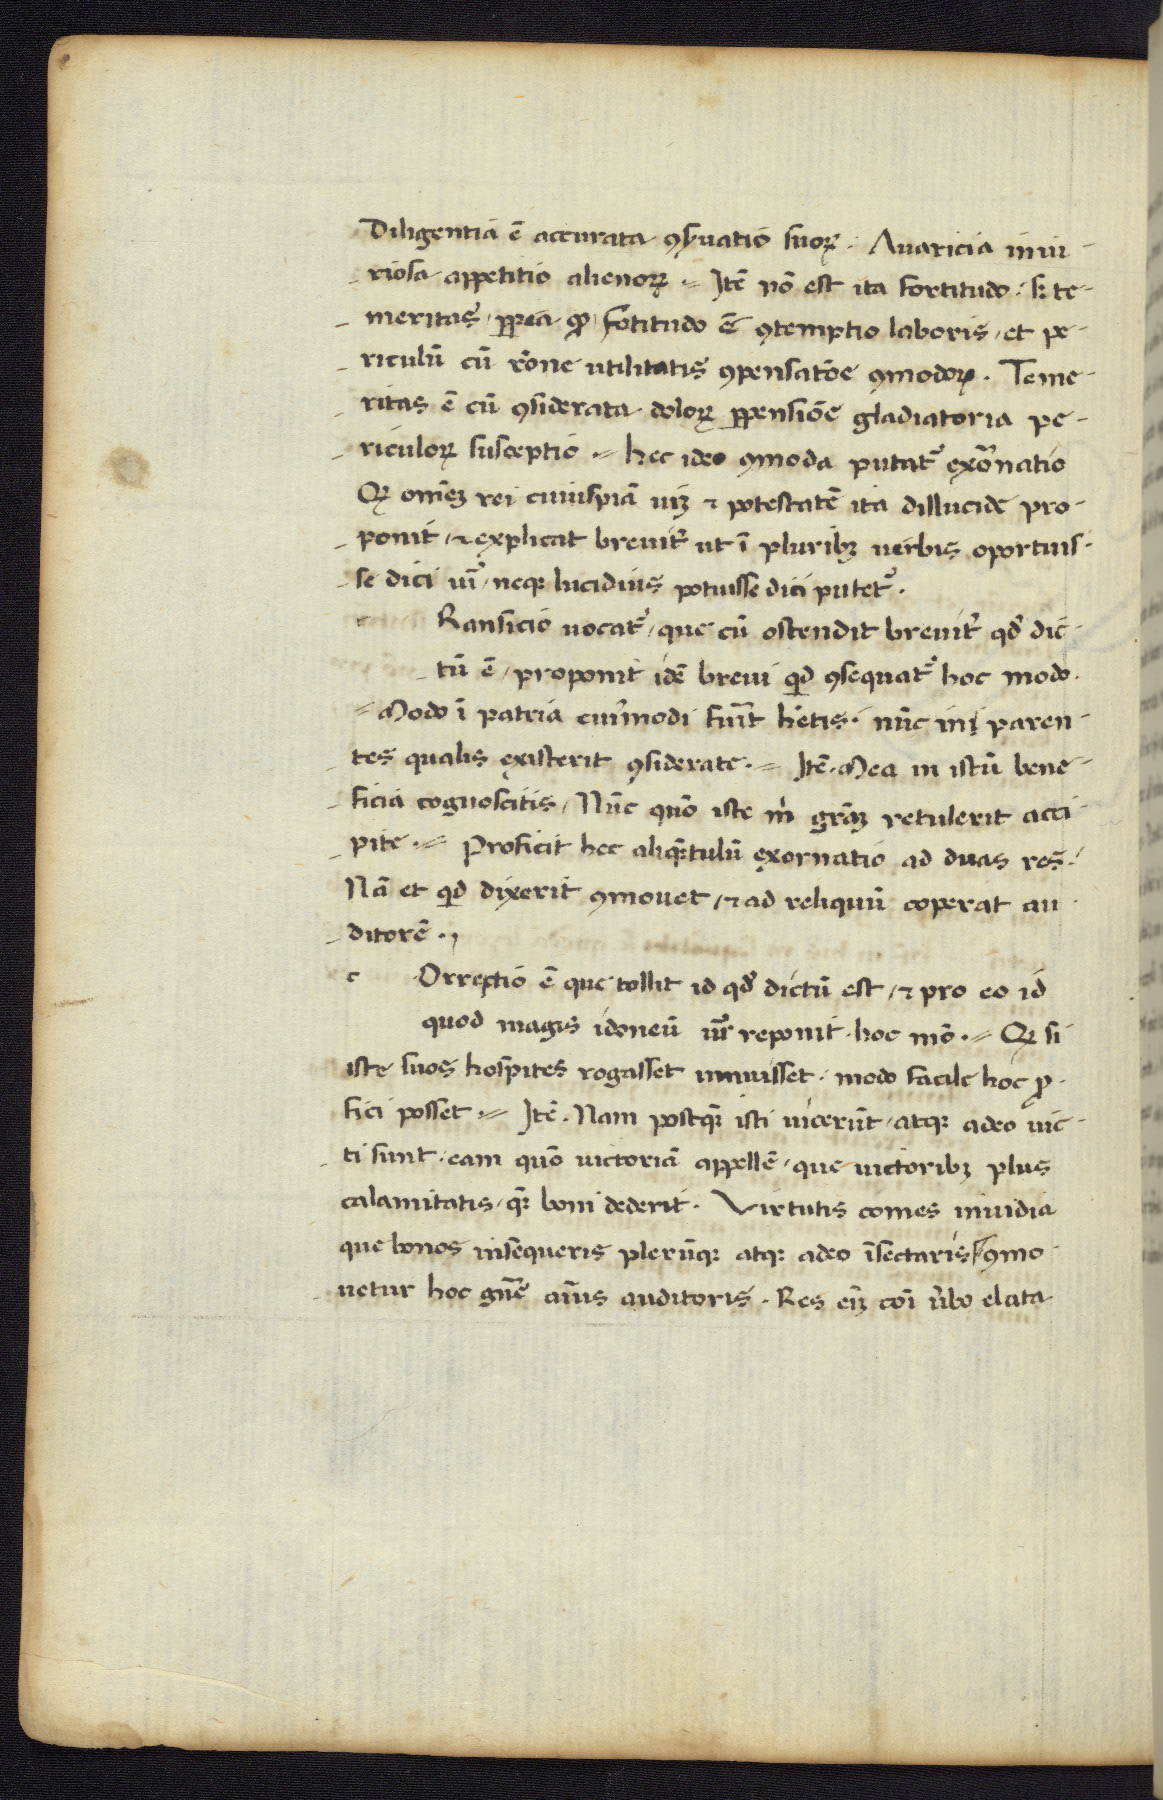 Diligentia ē accurata ꝯſuatio suoꝝ · Auaricia iniu-
riosa appetitio alienoꝝ ·= Itē nō est ita fortitudo · sꝫ te-
meritas / ꝓpꝛea qꝫ fotitudo ē ꝯtemptio laboris / et pe-
riculū cū rōne utilitatis ꝯpensatōe ꝯmodoꝝ · Teme-
ritas ē cū ꝯsiderata doloꝝ ꝑpensiōe gladiatoria pe-
riculoꝝ susceptio ·= hec ideo ꝯmoda putat᷑ exornatio
Qꝫ omēꝫ rei cuiuspiā uiꝫ ⁊ potestatē ita dillucide pro-
ponit / ⁊ explicat breuit᷑ ut ī pluribꝫ uerbis oportuis-
se dici ui᷑ / neqꝫ lucidius potuisse dici putet᷑ ·
Ransicio uocat᷑ / que cū ostendit breuit᷑ qd̛ dic-
tū ē / proponit idē breui qd ꝯsequat᷑ hoc modo ·
= Modo ī patria cuiꝰmodi fuīt hētis · nūc ini paren
tes qualis existerit ꝯsiderate ·= Itē · Mea in istū bene-
ficia cognoscitis / Nūc quō iste m̄ grāꝫ retulerit acci-
pite ·= Proficit hec aliqꝫtulū exornatio ad duas res /
Nā et qd dixerit ꝯmouet / ⁊ ad reliquū coperat au
ditorē ·,
c Orrectio ē que tollit id qd̛ dictū est / ⁊ pro eo id
quod magis idoneū ur̄ reponit · hoc mō ·= Qꝫ si
iste suos hospites rogasset innuisset · modo facile hoc ꝓ-
fici posset ·= Itē · Nam postqꝫ isti uicerūt / atqꝫ adeo uic-
ti sunt · eam quō uictoriā appellē / que uictoribꝫ plus
calamitatis / qꝫ boni dederit · Virtutis comes inuidia
que bonos insequeris plerūqꝫ atqꝫ adeo īsectaris / ꝯmo-
uetur hoc gn̄e aīus auditoris · Res eīꝫ coī ūbo elata